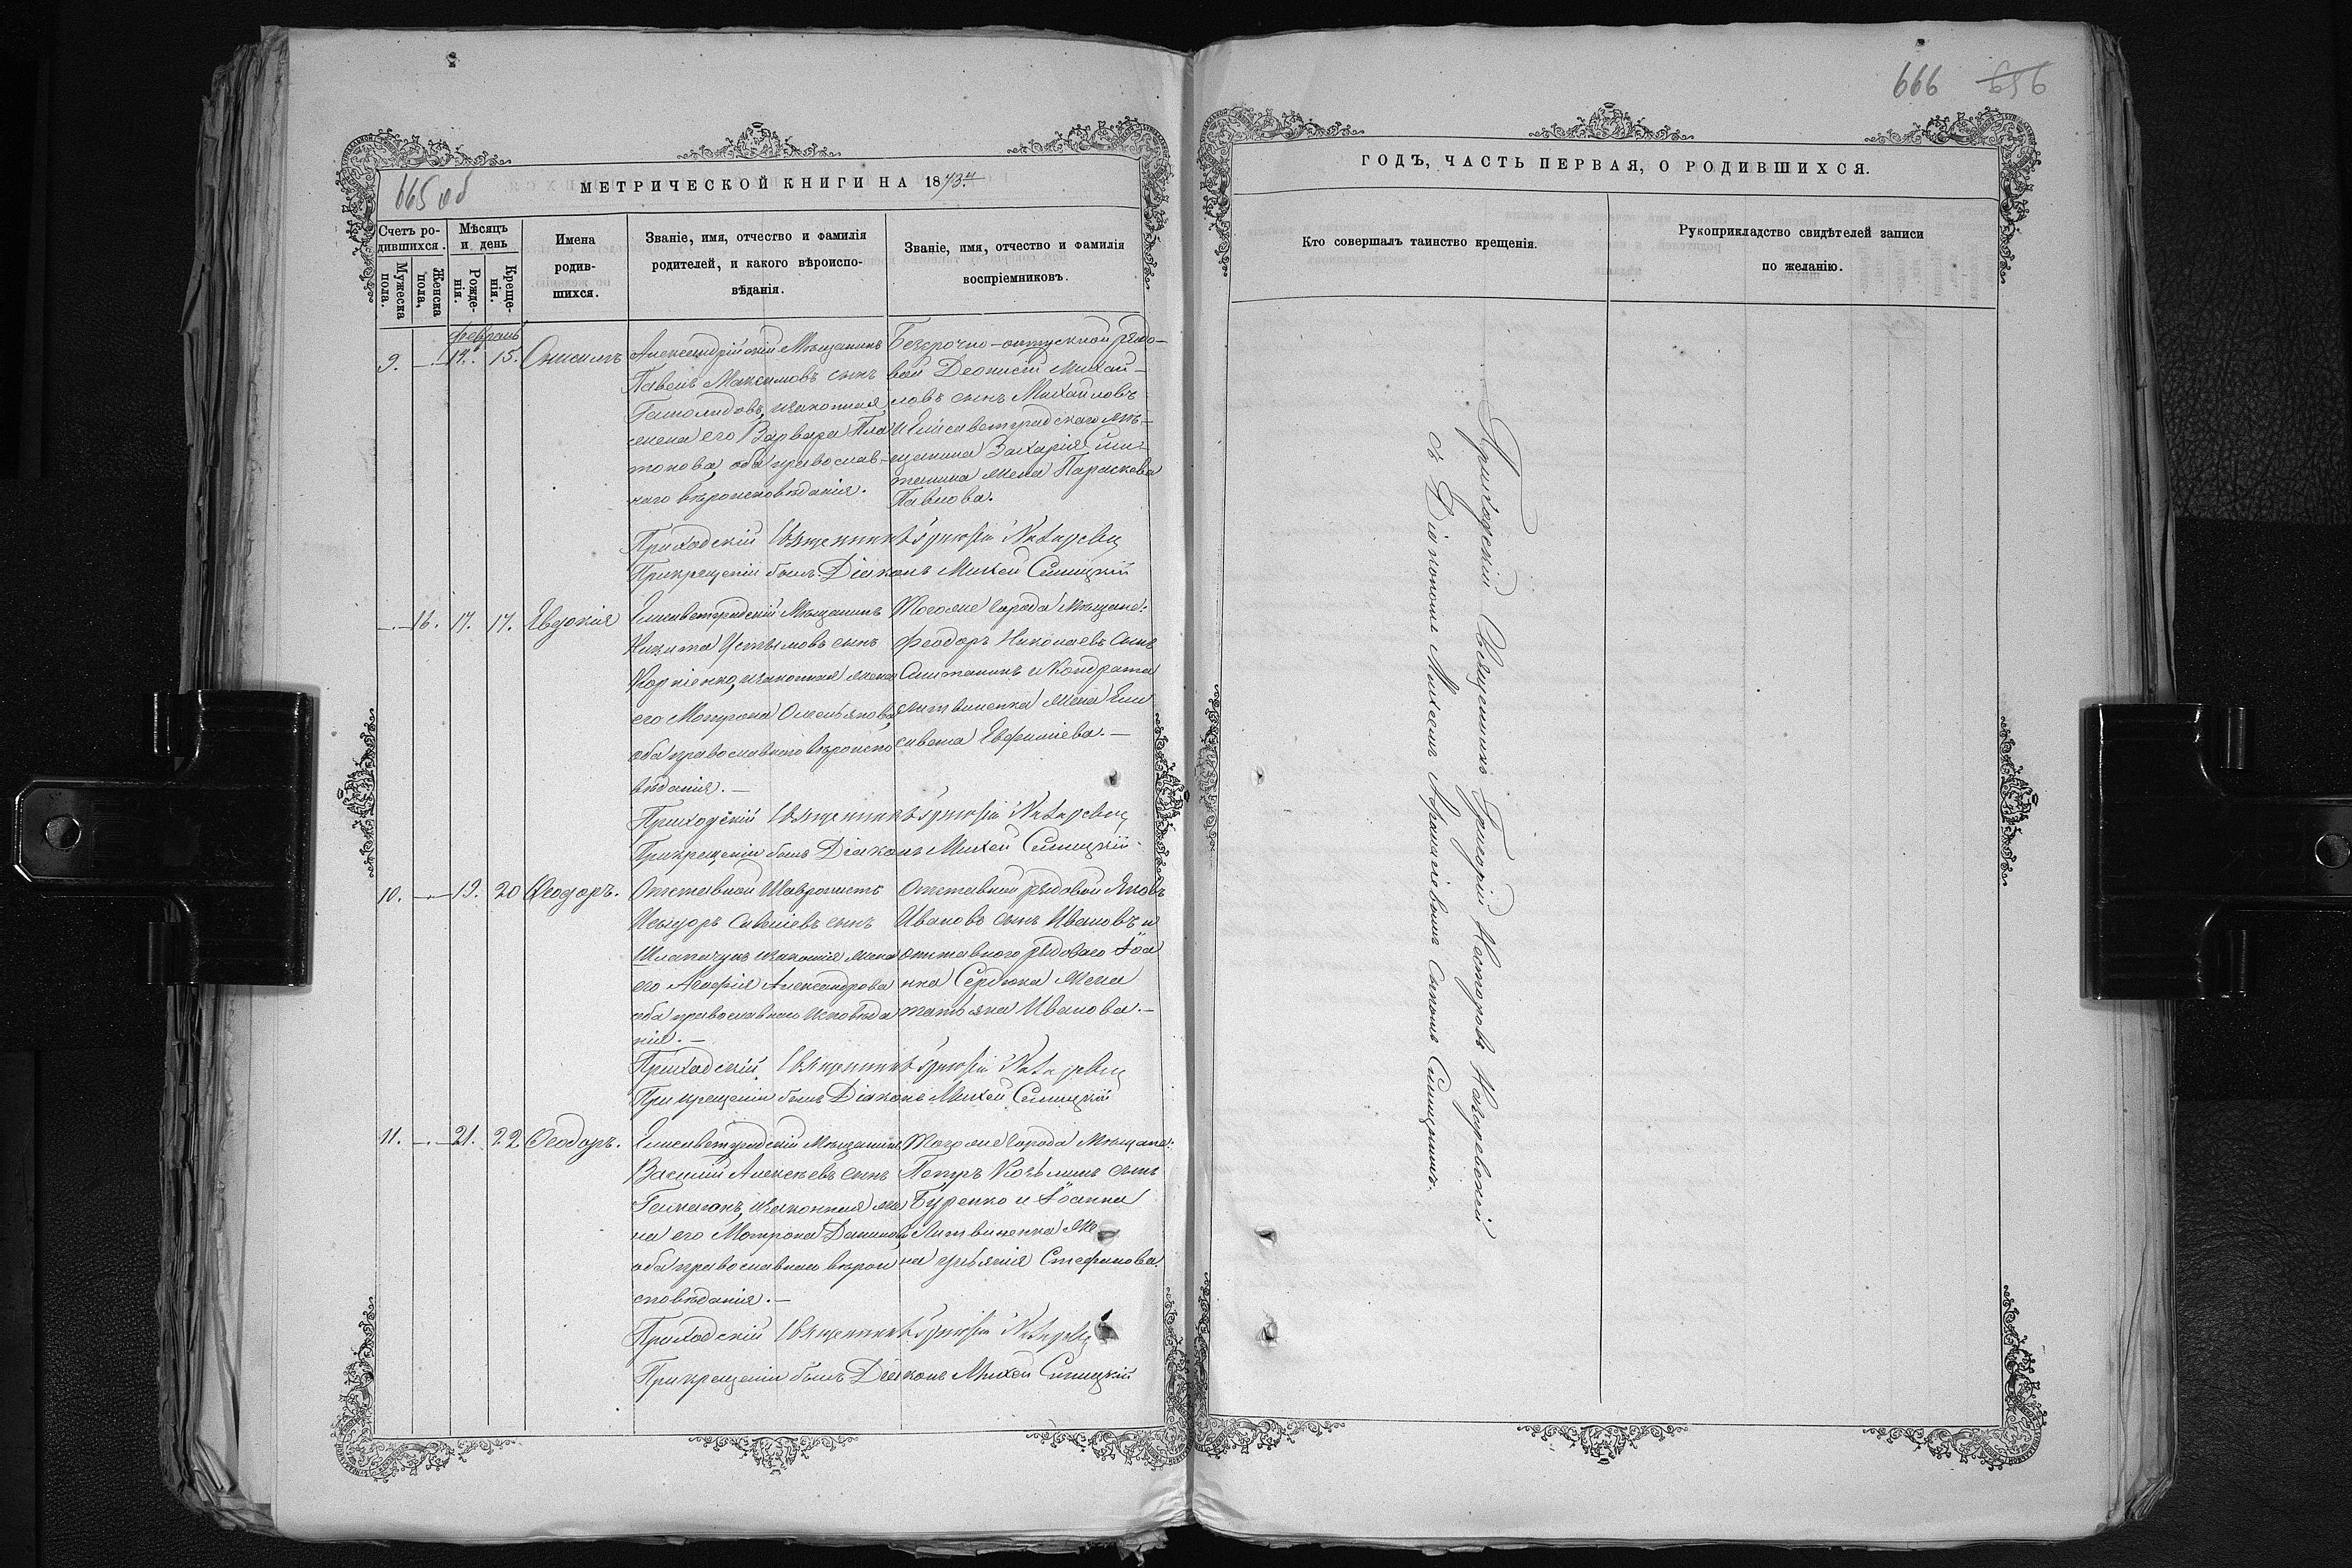 665 об
МЕТРИЧЕСКОЙ КНИГИ НА 1873й
Счетъ ро-
дившихся.
Мужеска
пола.
Женска
пола,
Мѣсяцъ
и день
Рожде-
нія.
Креще-
нія.
Имена
родив-
шихся.
Званіе, имя, отчество и фамилія
родителей, и какого вѣроиспо-
вѣданія.
Званіе, имя, отчество и фамилія
воспріемниковъ.
Февраль
9. — 14. 15. Онисимъ
Александрійскій Мѣщанинъ
Павелъ Максимовъ сынъ
законная
жена его Варвара Пла
тонова, оба православ-
наго вѣроисповѣданія.
Безсрочно-отпускной рядо-
вой Деонисій Михай-
ловъ сынъ Михайловъ
и Елисаветградскаго мѣ-
щанина Захарія
жена Параскева
Павлова.
Приходскій Священникъ Григорій
При крещеніи былъ Діаконъ Михей Синицкій
— 16. 17. 17. Евдокія
Елисаветградскій Мѣщанинъ
Никита Устимовъ сынъ
Корніенко, и законная жена
его Мотрона Омельянова,
оба православнаго вѣроиспо
вѣданія. —
Того же города Мѣщане:
Феодоръ Николаевъ сынъ
и Кондрата
Литвиненка жена Ели
савета Евфиміева. —
Приходскій Священникъ Григорій
При крещеніи былъ Діаконъ Михей Синицкій
10. — 19. 20 Ѳеодоръ.
Отставной
Исидоръ Савеліевъ сынъ
и законная жена
его Агафія Александрова
оба православнаго исповѣда
нія. —
Отставной рядовой Яковъ
Ивановъ сынъ Ивановъ и
отставного рядового Іоа
нна Сердюка жена
Татьяна Иванова. —
Приходскій Священникъ Григорій
При крещеніи былъ Діаконъ Михей Синицкій
11. — 21. 22 Ѳеодоръ.
Елисаветградскій Мѣщанинъ
Василій Алексѣевъ сынъ
и законная же
на его Мотрона Данилова
оба православнаго вѣрои
сповѣданія. —
Того же города Мѣщане:
Петръ Козьминъ сынъ
Буренко и Іоанна
Литвиненка же
на Стефанова.
Приходскій Священникъ Григорій
При крещеніи былъ Діаконъ Михей Синицкій
666 656
ГОДЪ, ЧАСТЬ ПЕРВАЯ, О РОДИВШИХСЯ.
Кто совершалъ таинство крещенія.
Рукоприкладство свидѣтелей записи
по желанію.
Приходскій Священникъ Григорій Несторовъ Назаревскій
съ Діакономъ Михеемъ Афанасіевымъ сыномъ Синицкимъ.